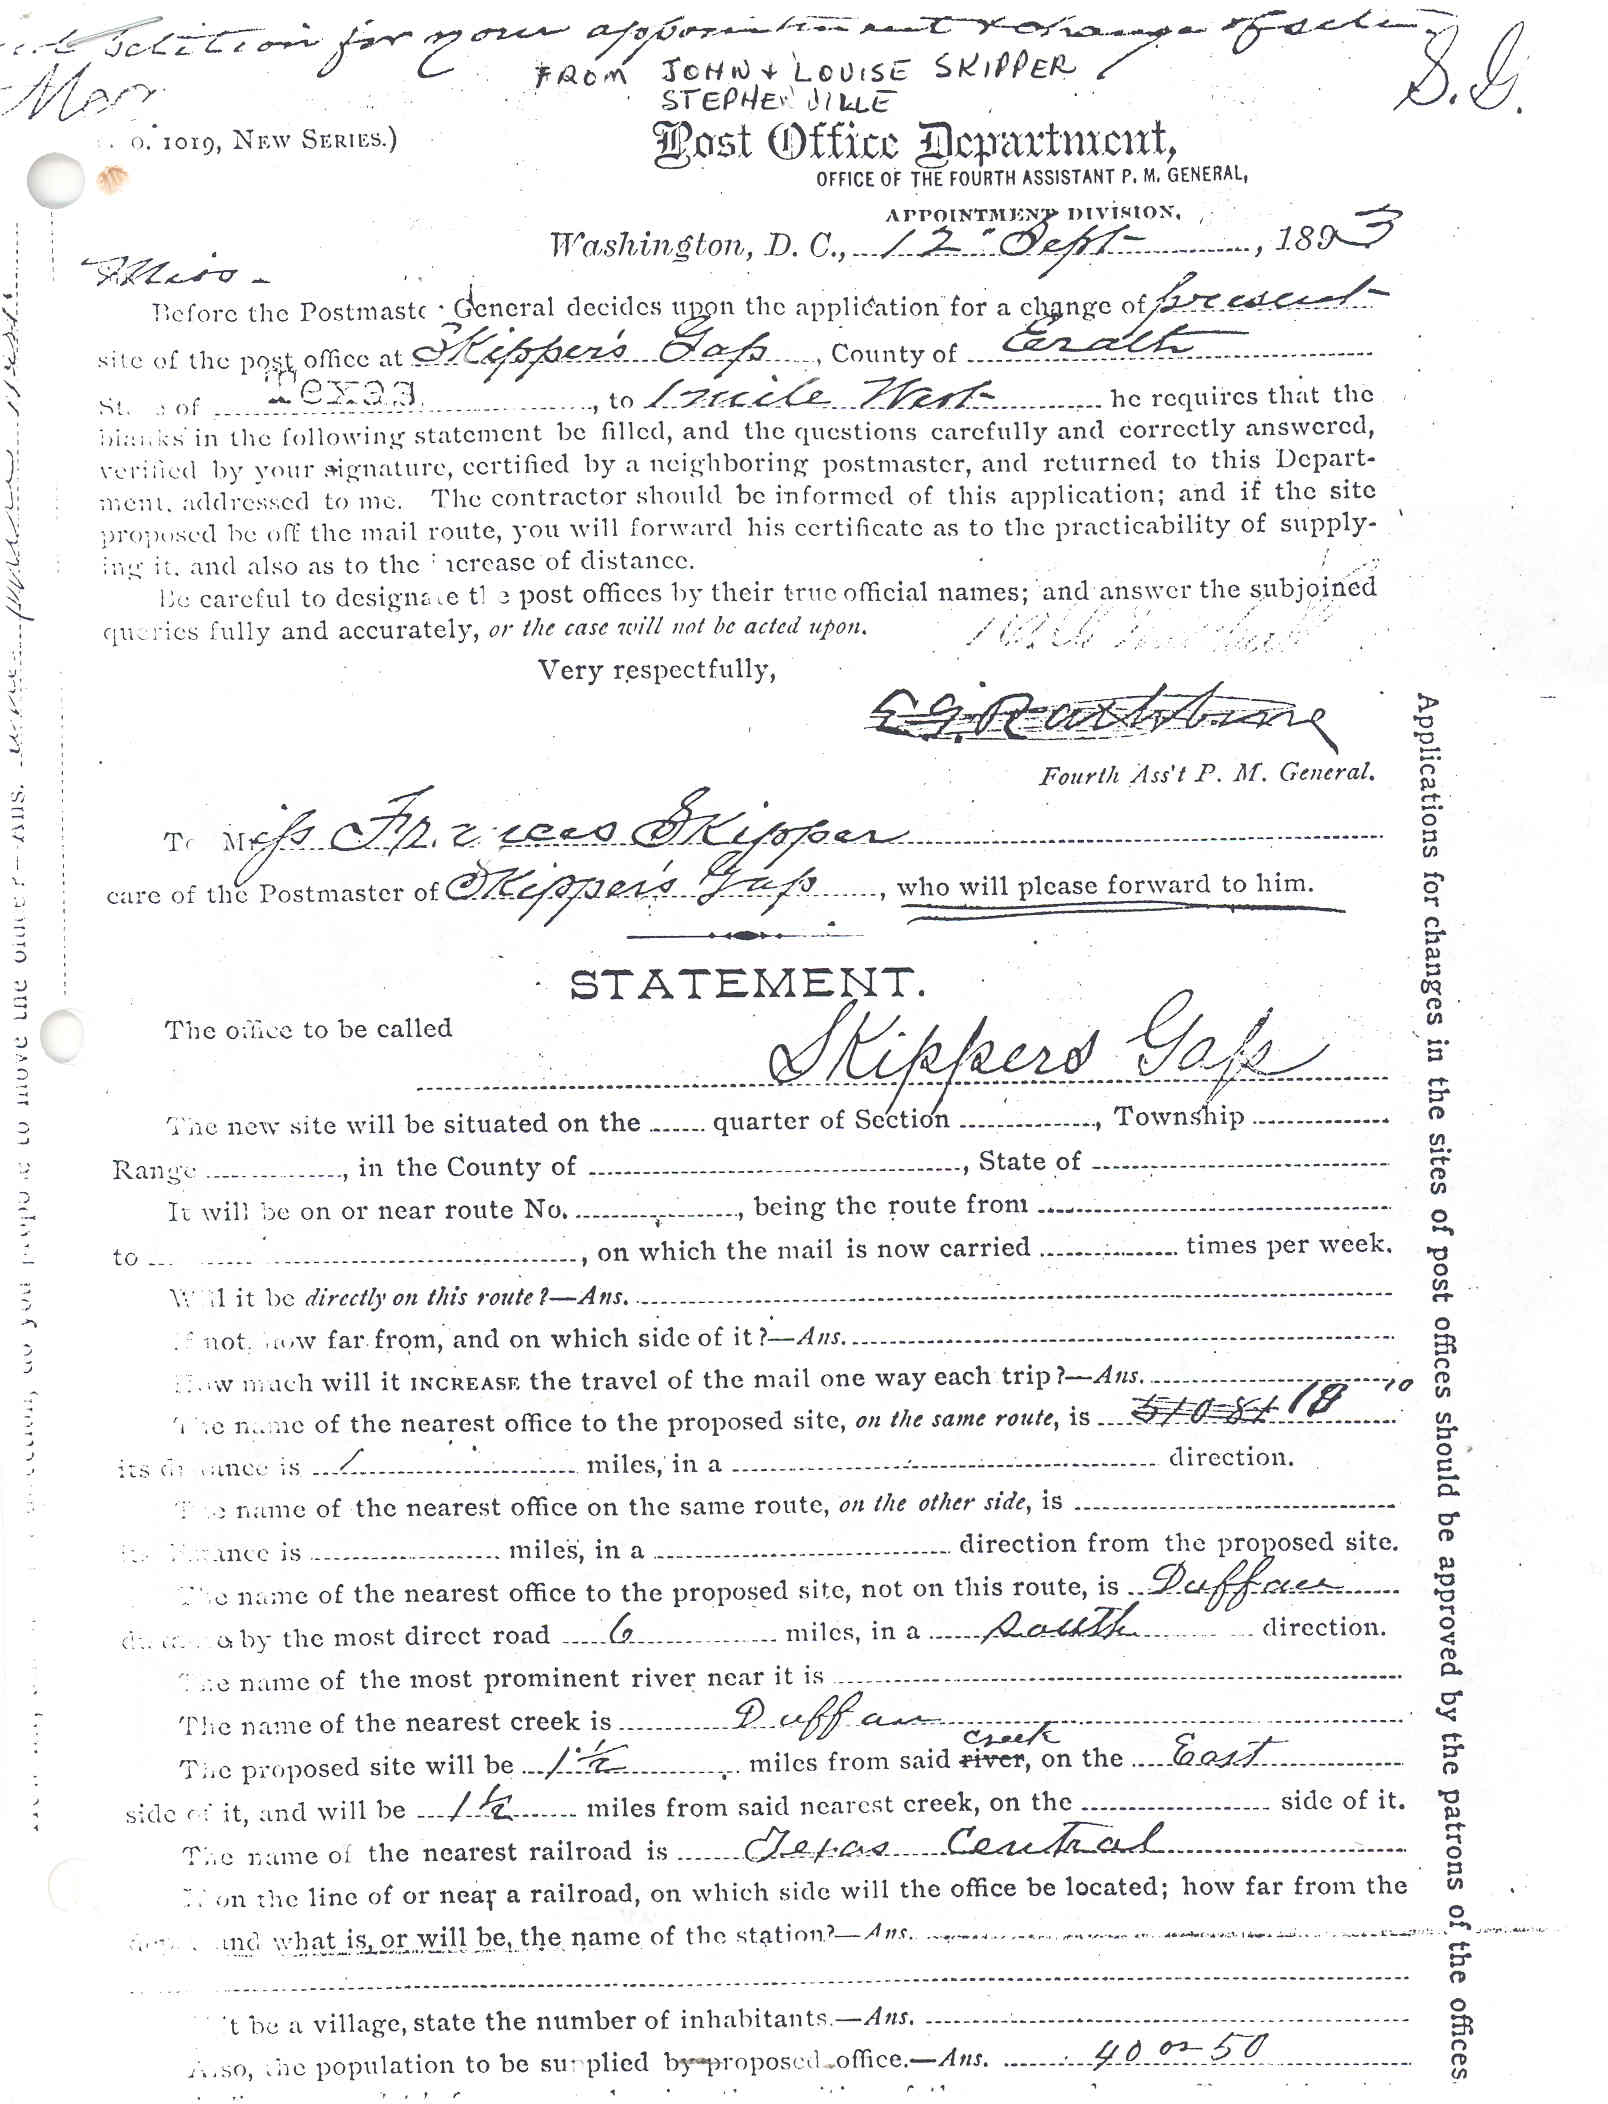 petition for your appointment & change of site
FROM JOHN & LOUISE SKIPPER
STEPHENVILLE
S. G.
o. 1019, NEW SERIES.)
Post Office Department,
OFFICE OF THE FOURTH ASSISTANT P. M. GENERAL,
APPOINTMENT DIVISION.
Washington, D. C., 12" Sept , 1893
Miss -
Before the Postmaste General decides upon the application for a change of present
site of the post office at Skipper's Gap , County of Erath
St e of Texas , to 1 mile West he requires that the
blanks in the following statement be filled, and the questions carefully and correctly answered,
verified by your signature, certified by a neighboring postmaster, and returned to this Depart-
ment, addressed to me. The contractor should be informed of this application; and if the site
proposed be off the mail route, you will forward his certificate as to the practicability of supply-
ing it, and also as to the increase of distance.
Be careful to designate the post offices by their true official names; and answer the subjoined
queries fully and accurately, or the case will not be acted upon.
Very respectfully,
E. G. Rathbone
Fourth Ass't P. M. General.
To Miss Frances Skipper
care of the Postmaster of Skipper's Gap , who will please forward to him.
STATEMENT.
The office to be called Skippers Gap
The new site will be situated on the quarter of Section , Township
Range , in the County of , State of
It will be on or near route No. , being the route from
to , on which the mail is now carried times per week.
Will it be directly on this route?—Ans.
If not, how far from, and on which side of it?—Ans.
How much will it INCREASE the travel of the mail one way each trip?—Ans. 10
The name of the nearest office to the proposed site, on the same route, is 18
its distance is miles, in a direction.
The name of the nearest office on the same route, on the other side, is
its distance is miles, in a direction from the proposed site.
The name of the nearest office to the proposed site, not on this route, is Duffau
distance by the most direct road 6 miles, in a South direction.
The name of the most prominent river near it is
The name of the nearest creek is Duffau
creek
The proposed site will be 1 1/2 miles from said river, on the East
side of it, and will be 1 1/2 miles from said nearest creek, on the side of it.
The name of the nearest railroad is Texas Central
If on the line of or near a railroad, on which side will the office be located; how far from the
depot, and what is, or will be, the name of the station?—Ans.
't be a village, state the number of inhabitants.—Ans.
Also, the population to be supplied by proposed office.—Ans. 40 or 50
Applications for changes in the sites of post offices should be approved by the patrons of the offices
do you propose to move the office?—Ans.